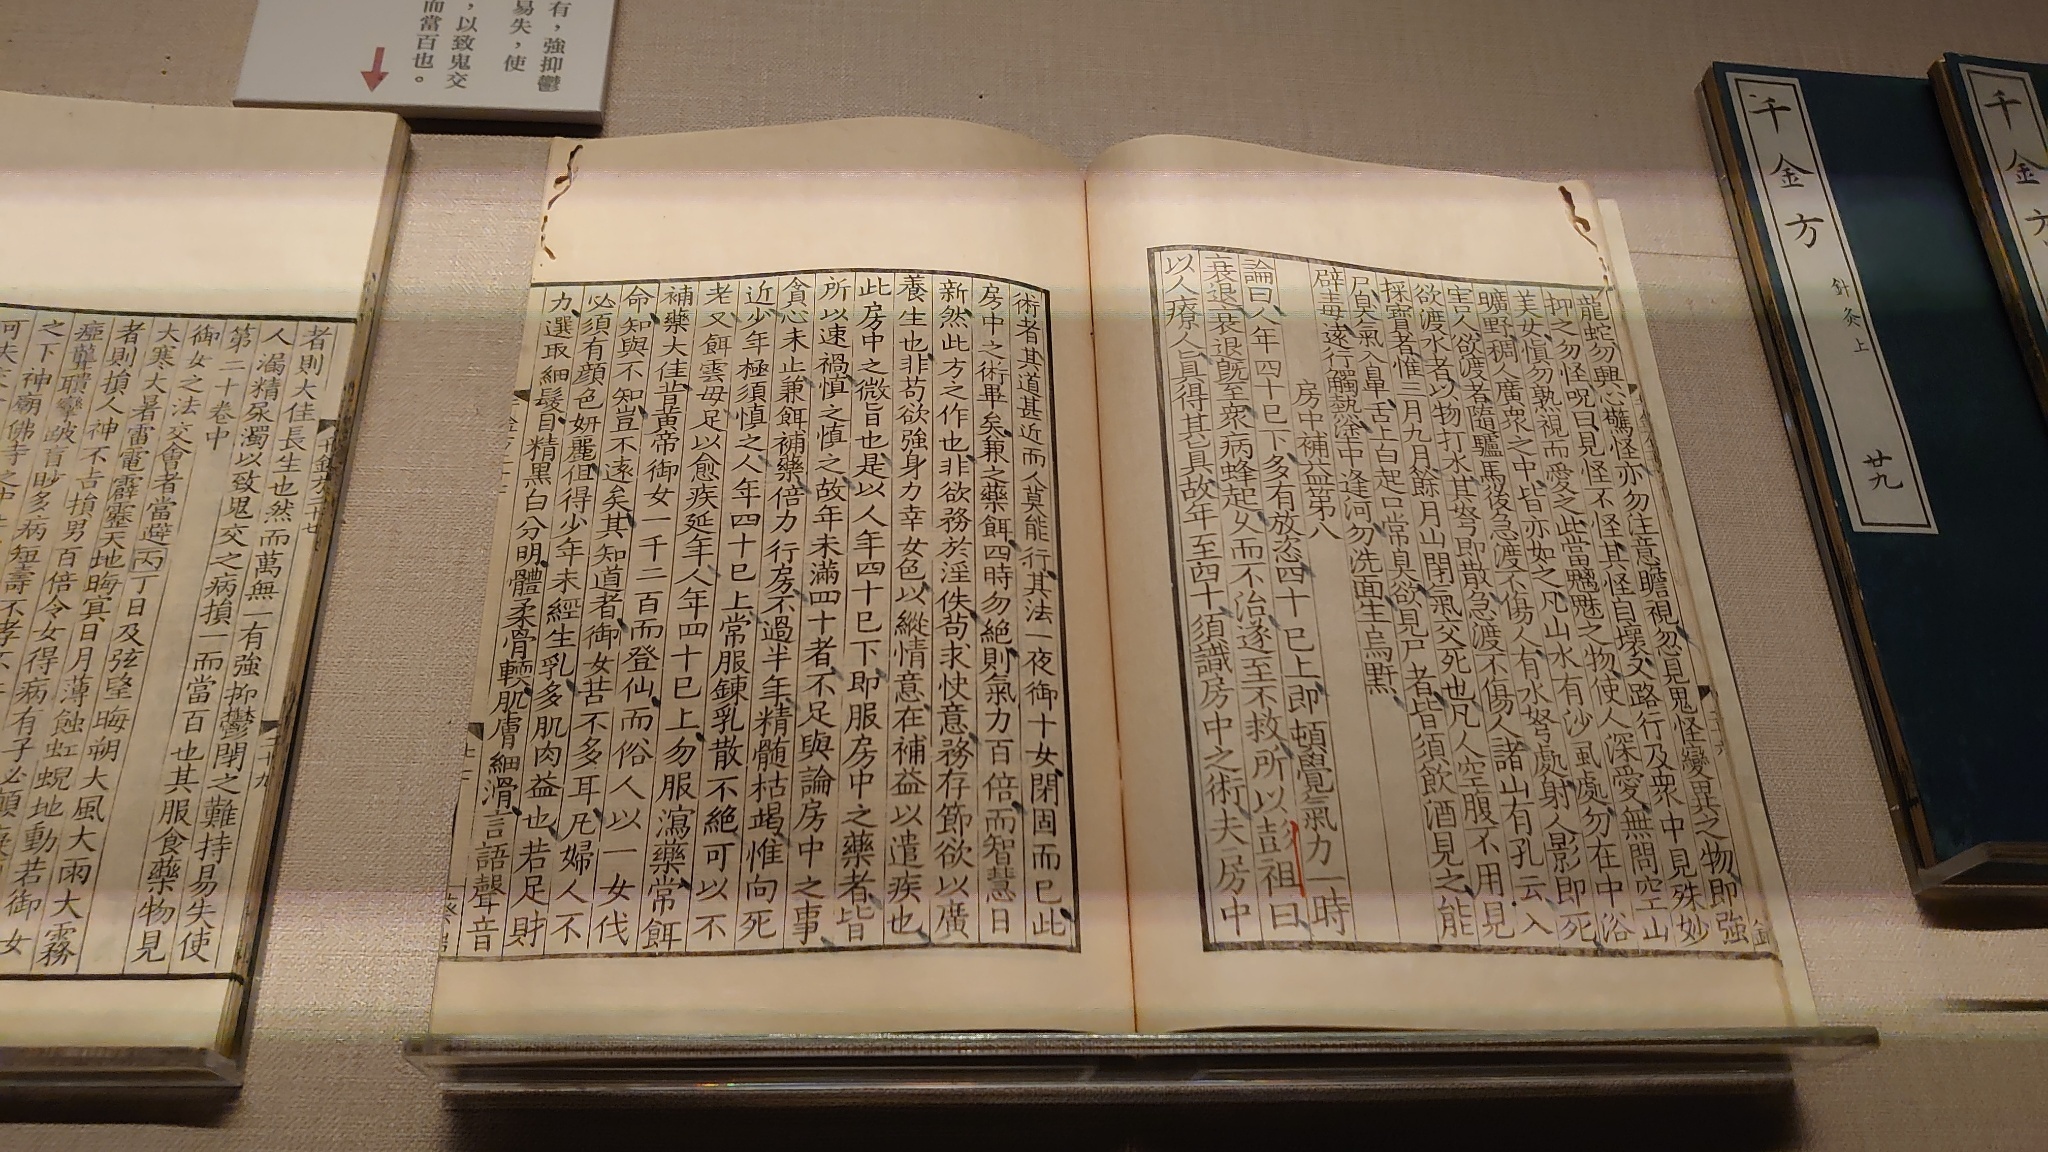 千金方
針灸上
廿九
千金方
龍蛇勿興心驚怪亦勿注意瞻視忽見鬼怪變異之物即強
抑之勿怪呪曰見怪不怪其怪自壞又路行及衆中見殊妙
美女慎勿熟視而愛之此當魑魅之物使人深愛無問空山
曠野稠人廣衆之中皆亦如之凡山水有沙虱處勿在中浴
害人欲渡者隨驢馬後急渡不傷人有水弩處射人影即死
欲渡水者以物打水其弩即散急渡不傷人諸山有孔云入
採寶者惟三月九月餘月山閉氣交死也凡人空腹不用見
尸臭氣入鼻舌上白起口常臭欲見尸者皆須飲酒見之能
辟毒遠行觸熱途中逢河勿洗面生烏䵟
房中補益第八
論曰人年四十已下多有放恣四十已上即頓覺氣力一時
衰退衰退既至衆病蜂起久而不治遂至不救所以彭祖曰
以人療人真得其真故年至四十須識房中之術夫房中
術者其道甚近而人莫能行其法一夜御十女閉固而已此
房中之術畢矣兼之藥餌四時勿絕則氣力百倍而智慧日
新然此方之作也非欲務於淫佚苟求快意務存節欲以廣
養生也非苟欲強身力幸女色以縱情意在補益以遣疾也
此房中之微旨也是以人年四十已下即服房中之藥者皆
所以速禍慎之慎之故年未滿四十者不足與論房中之事
貪心未止兼餌補藥倍力行房不過半年精髓枯竭惟向死
近少年極須慎之人年四十已上常服鍊乳散不絕可以不
老又餌雲母足以愈疾延年人年四十已上勿服瀉藥常餌
補藥大佳昔黃帝御女一千二百而登仙而俗人以一女伐
命知與不知豈不遠矣其知道者御女苦不多耳凡婦人不
必須有顏色妍麗但得少年未經生乳多肌肉益也若足財
力選取細髮目精黑白分明體柔骨軟肌膚細滑言語聲音
有，強抑鬱
易失，使
，以致鬼交
而當百也。
千金方二十七
二十九
者則大佳長生也然而萬無一有強抑鬱閉之難持易失使
人漏精尿濁以致鬼交之病損一而當百也其服食藥物見
第二十卷中
御女之法交會者當避丙丁日及弦望晦朔大風大雨大霧
大寒大暑雷電霹靂天地晦冥日月薄蝕虹蜺地動若御女
者則損人神不吉損男百倍令女得病有子必顛癡
瘖聾聵攣跛盲眇多病短壽不孝不
之下神廟佛寺之中